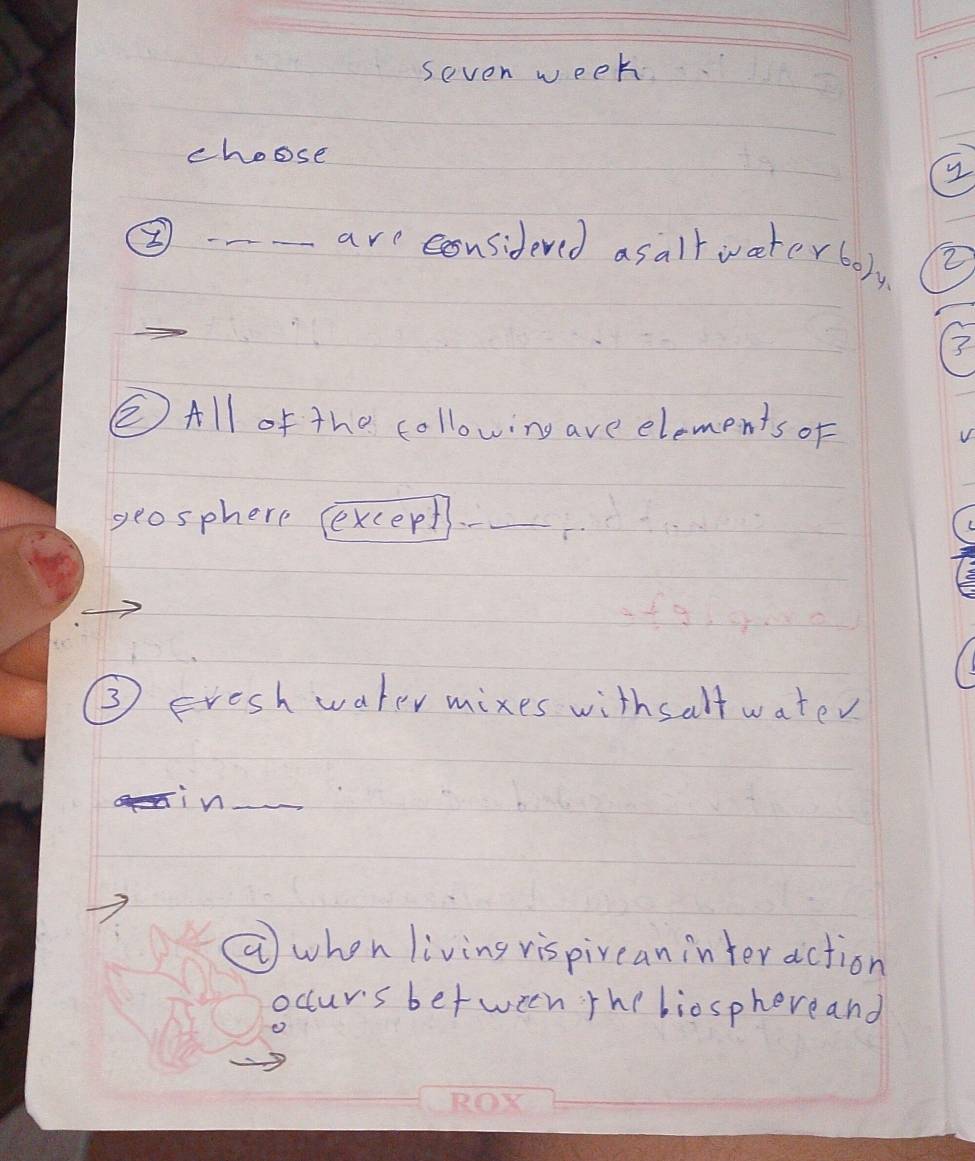 seven week
choose
1 ---- are considered as alt water body.
→
2 All of the collowing are elements of
geosphere except -----.
→
3 Fresh water mixes with salt water
in ----
→
a when living rispire an interaction
occurs between the biosphere and
→
ROX
1
2
3